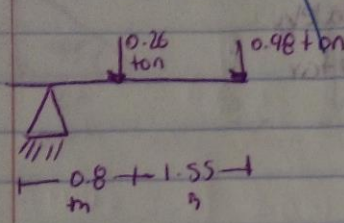 0.26 ton
0.98 ton
0.8 m
1.55 m